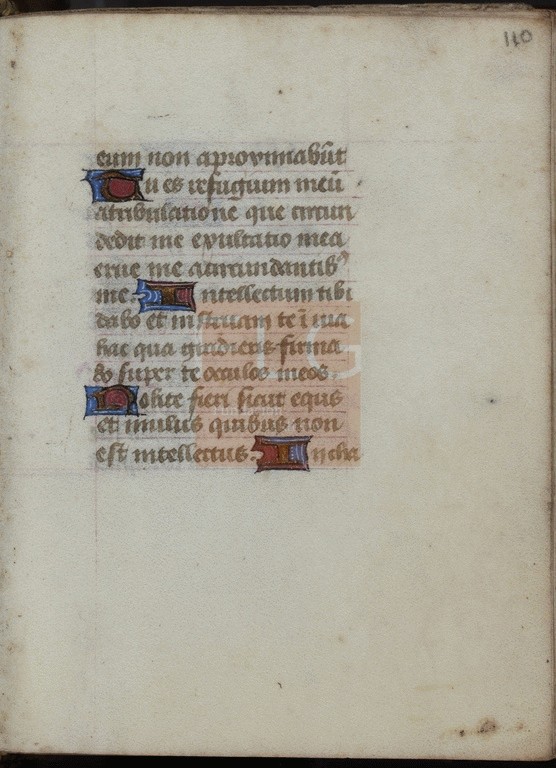 110
eum non aproximabūt
Tu es refugium meū
atribulatione que circun
dedit me exultatio mea
erue me acircundantibꝰ
me. Intellectum tibi
dabo et instruam te ī uia
hac qua gradieris firma
bo super te occulos meos.
Nolite fieri sicut equs
et mulus quibus non
est intellectus. In cha